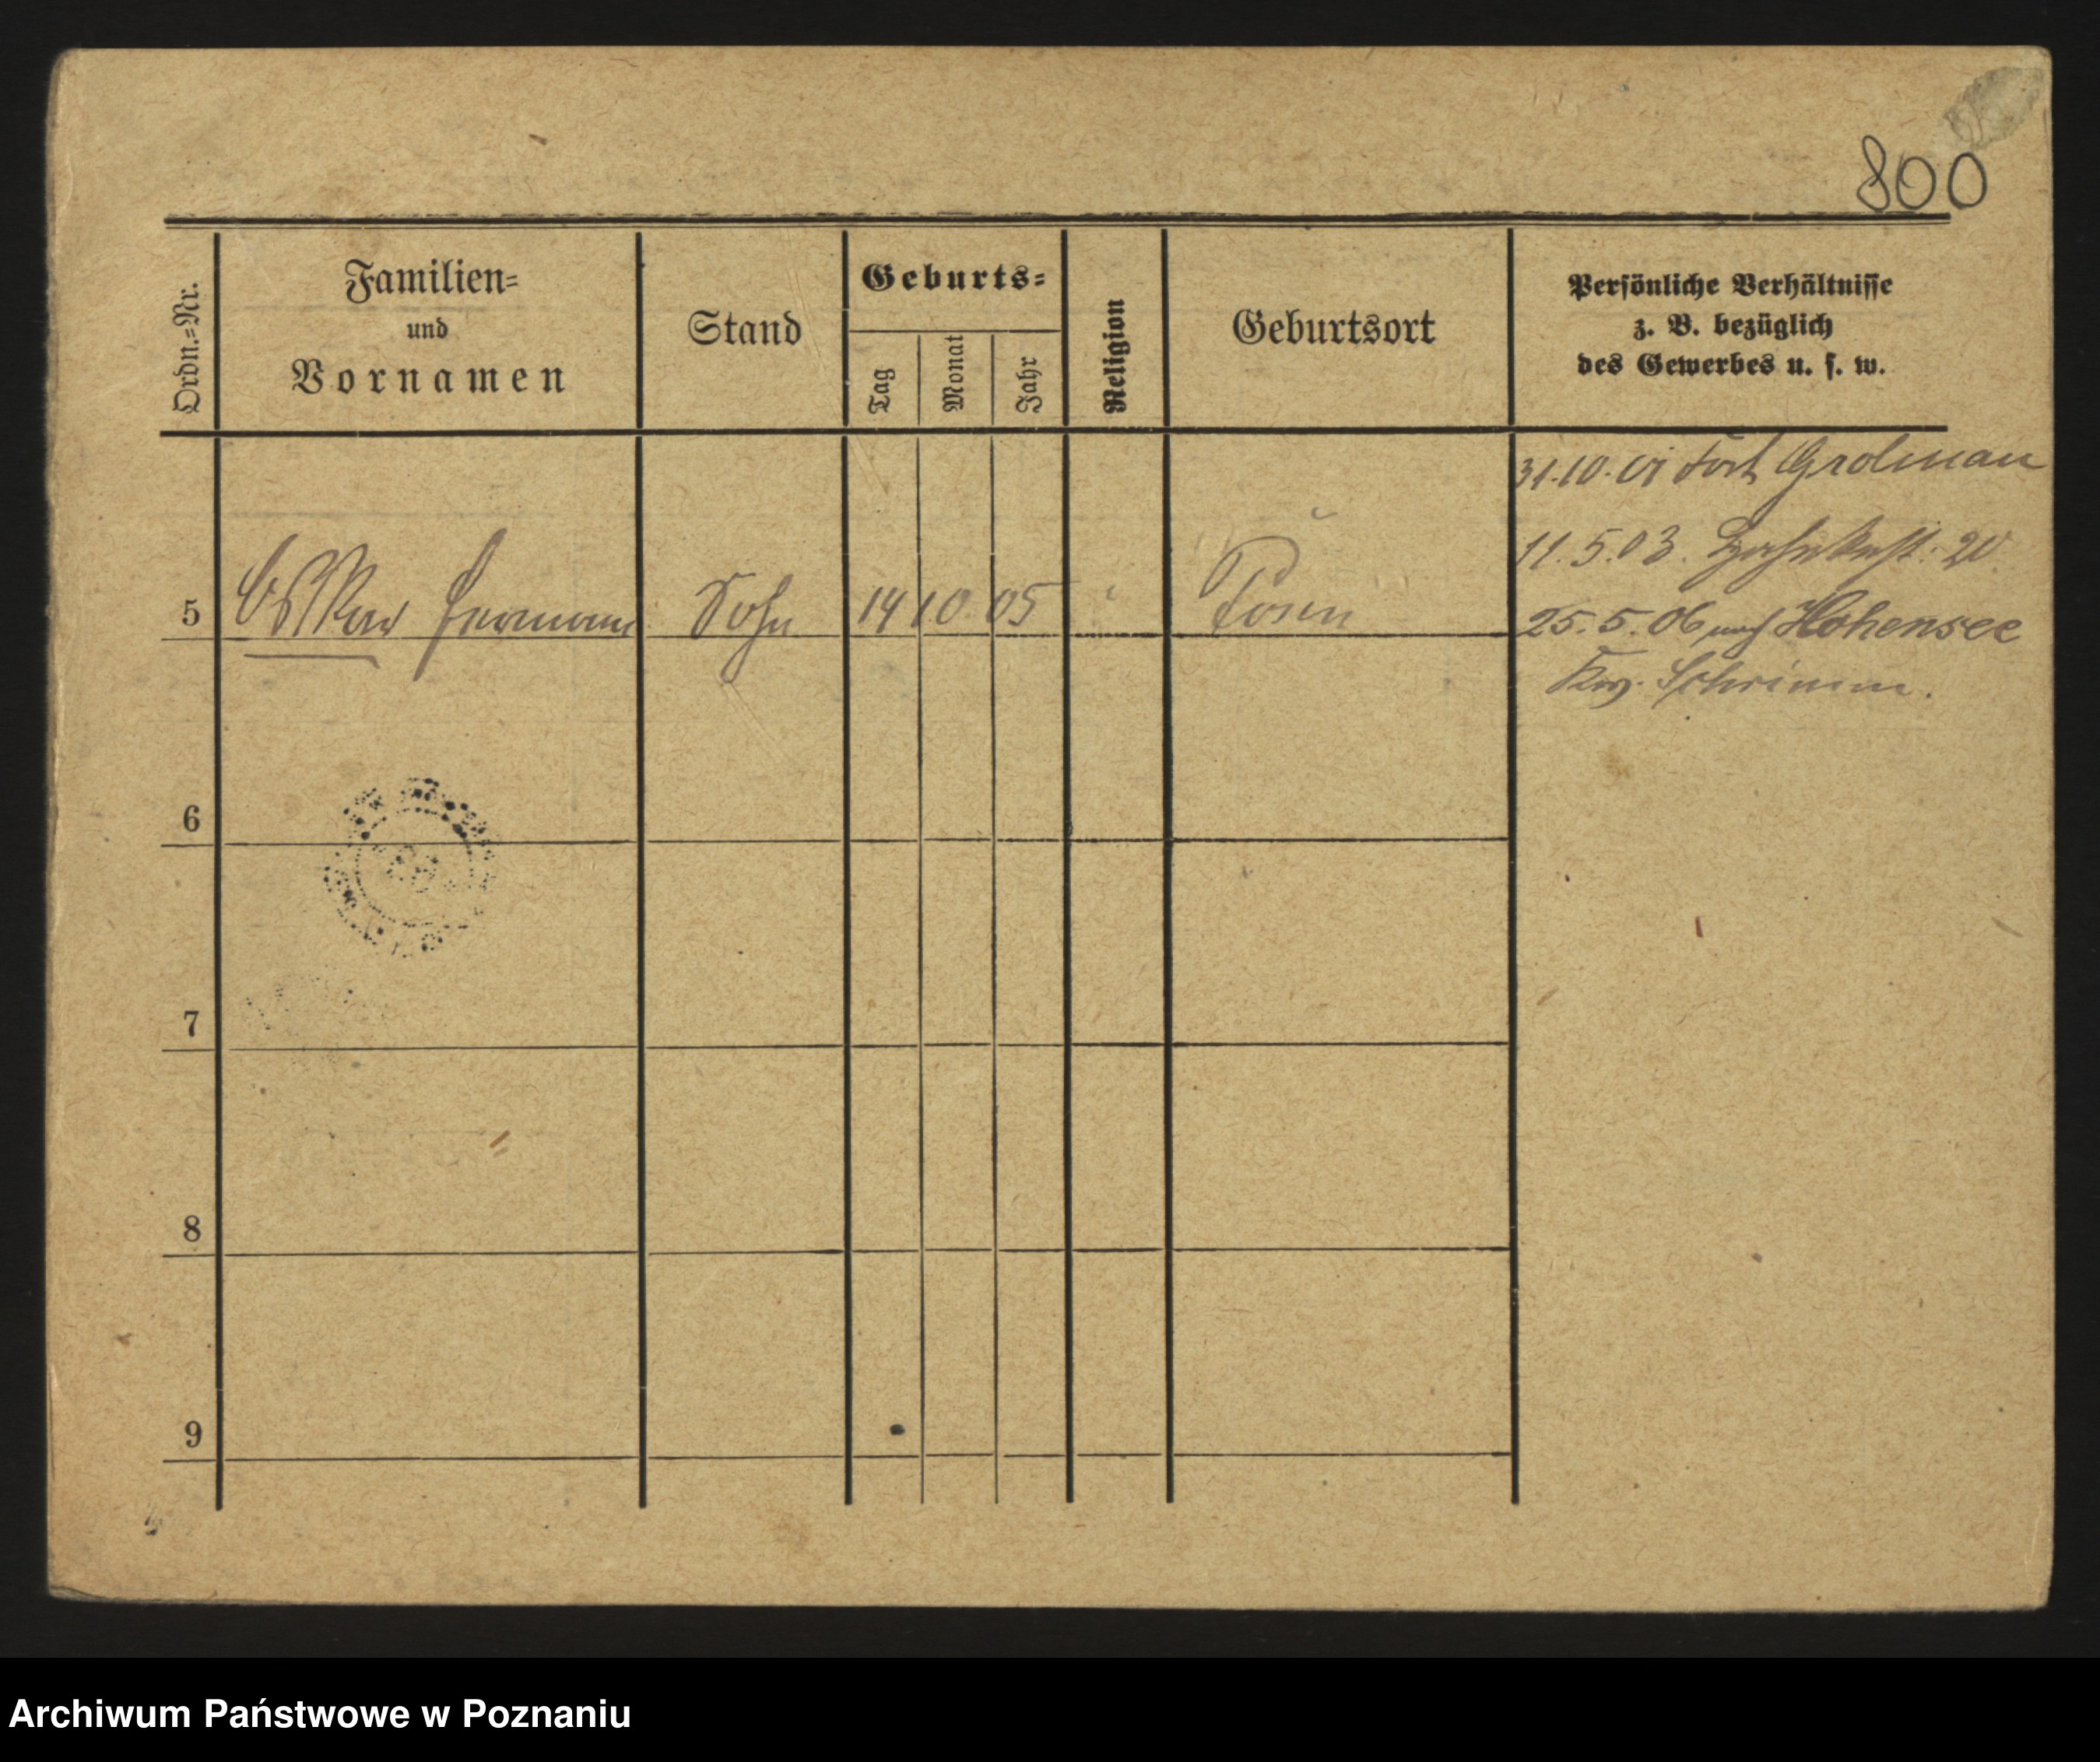 800
Ordn.-Nr.
Familien-
und
Vornamen
Stand
Geburts-
Tag
Monat
Jahr
Religion
Geburtsort
Persönliche Verhältnisse
z. B. bezüglich
des Gewerbes u. s. w.
31.10.01 Fort Grolman
11.5.03. 20.
5 Oskar Hermann Sohn 14 10 05 Posen
25.5.06 nach Hohensee
Krs. Schrimm.
6
7
8
9
Archiwum Państwowe w Poznaniu